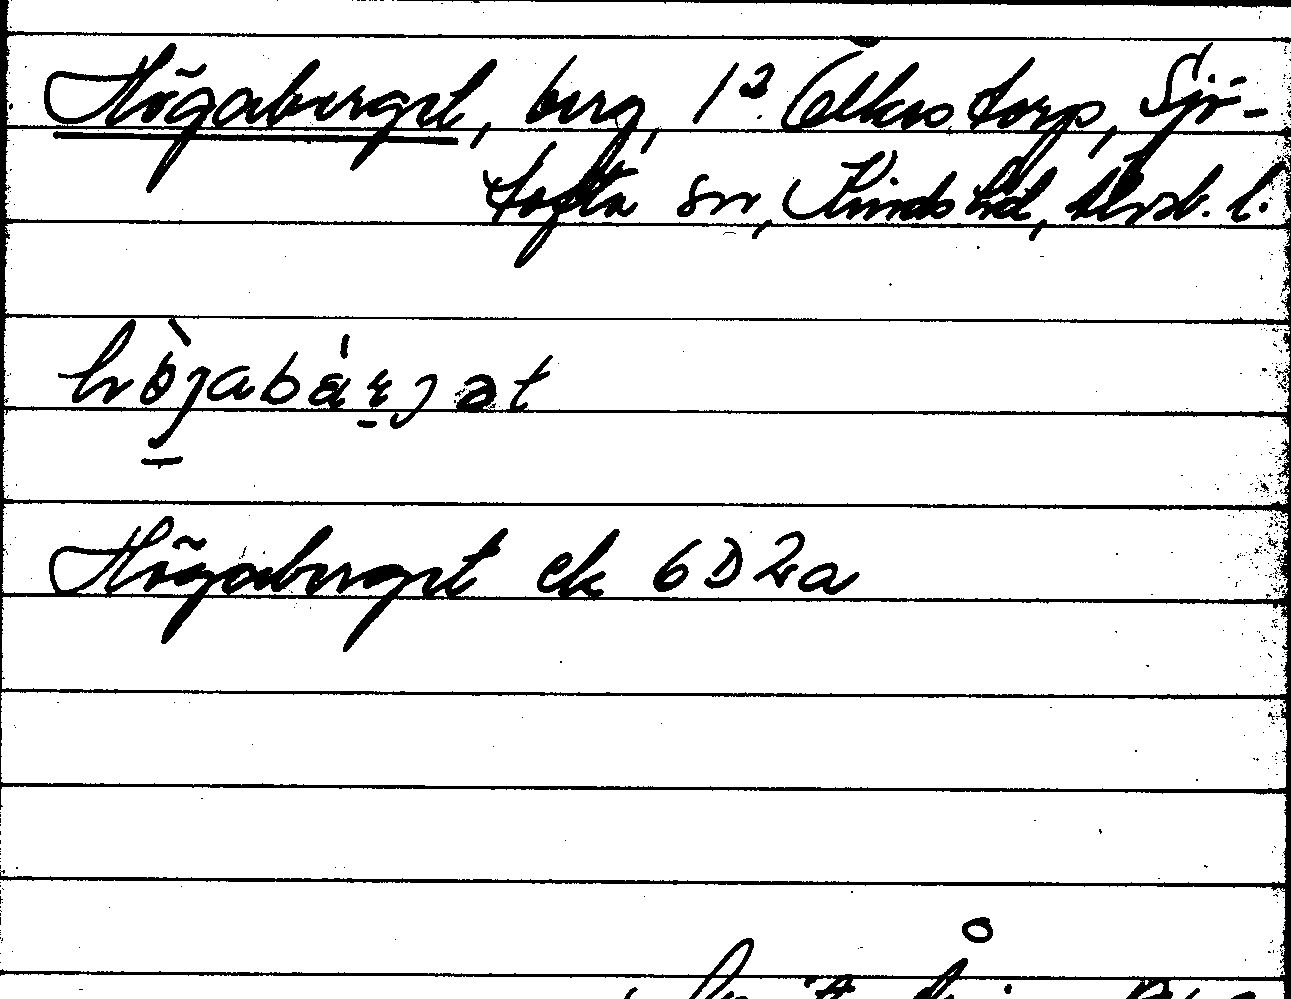 Högaberget, berg, 1² Ölkerstorp, Sjö-
tofta sn, Kinds hd, Älvsb. l.
hö̀ɟabá̈rɟət
Högaberget ek 6D2a